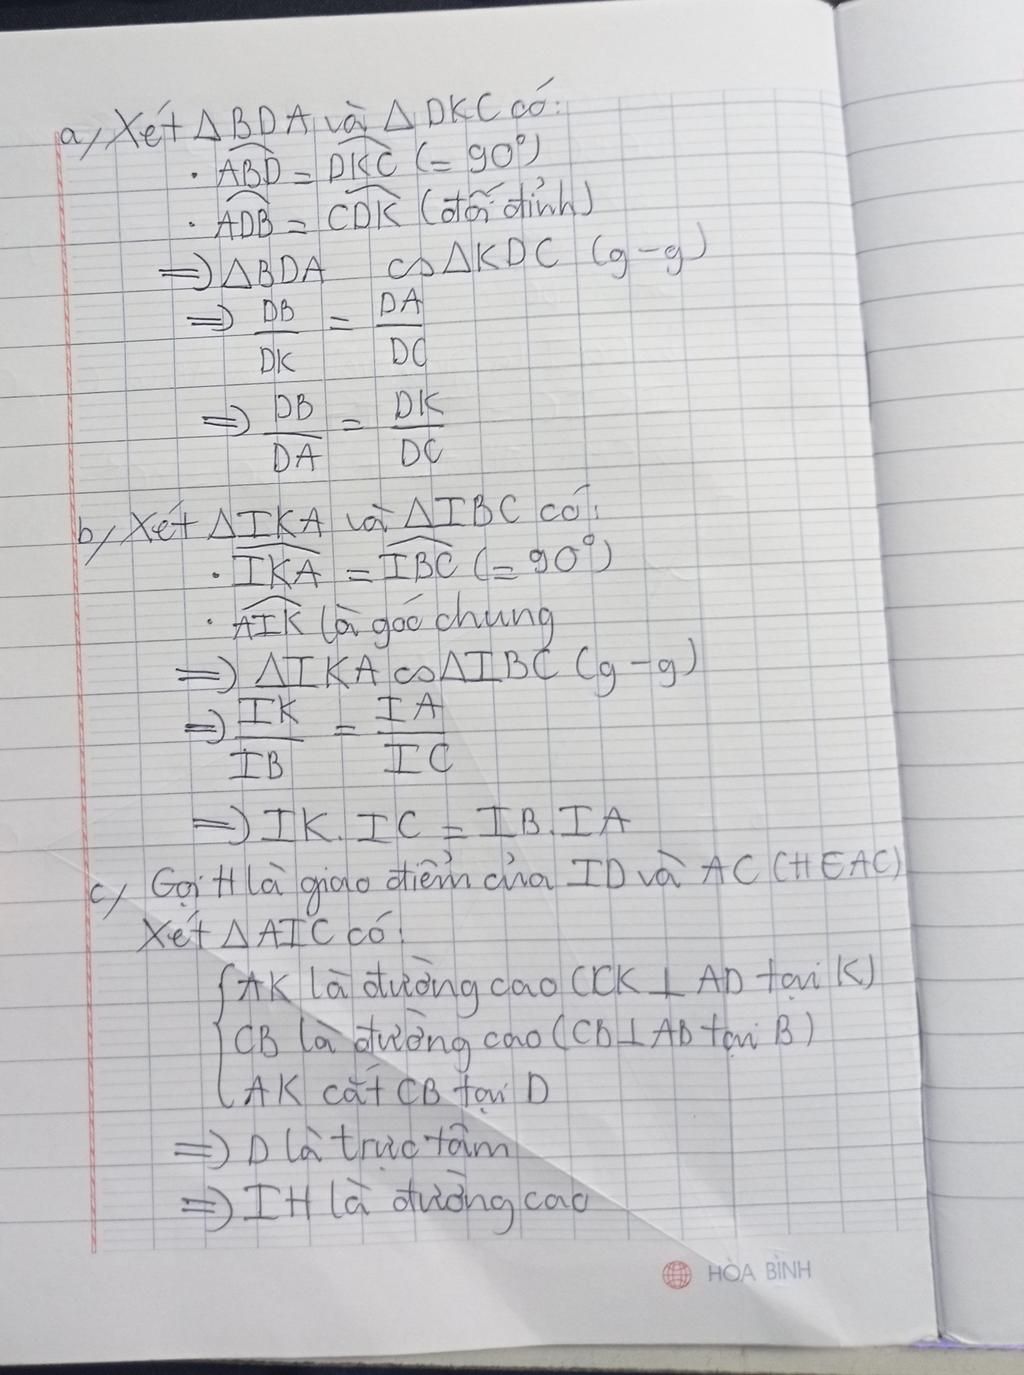 a, Xét △BDA và △DKC có:
· ABD = DKC (= 90°)
· ADB = CDK (đối đỉnh)
=> △BDA ∽ △KDC (g-g)
=> DB/DK = DA/DC
=> DB/DA = DK/DC
b, Xét △IKA và △IBC có:
· IKA = IBC (= 90°)
· AIK là góc chung
=> △IKA ∽ △IBC (g-g)
=> IK/IB = IA/IC
=> IK.IC = IB.IA
c, Gọi H là giao điểm của ID và AC (H∈AC)
Xét △AIC có:
{AK là đường cao (CK ⊥ AD tại K)
CB là đường cao (CB ⊥ AB tại B)
AK cắt CB tại D
=> D là trực tâm
=> IH là đường cao
HÒA BÌNH